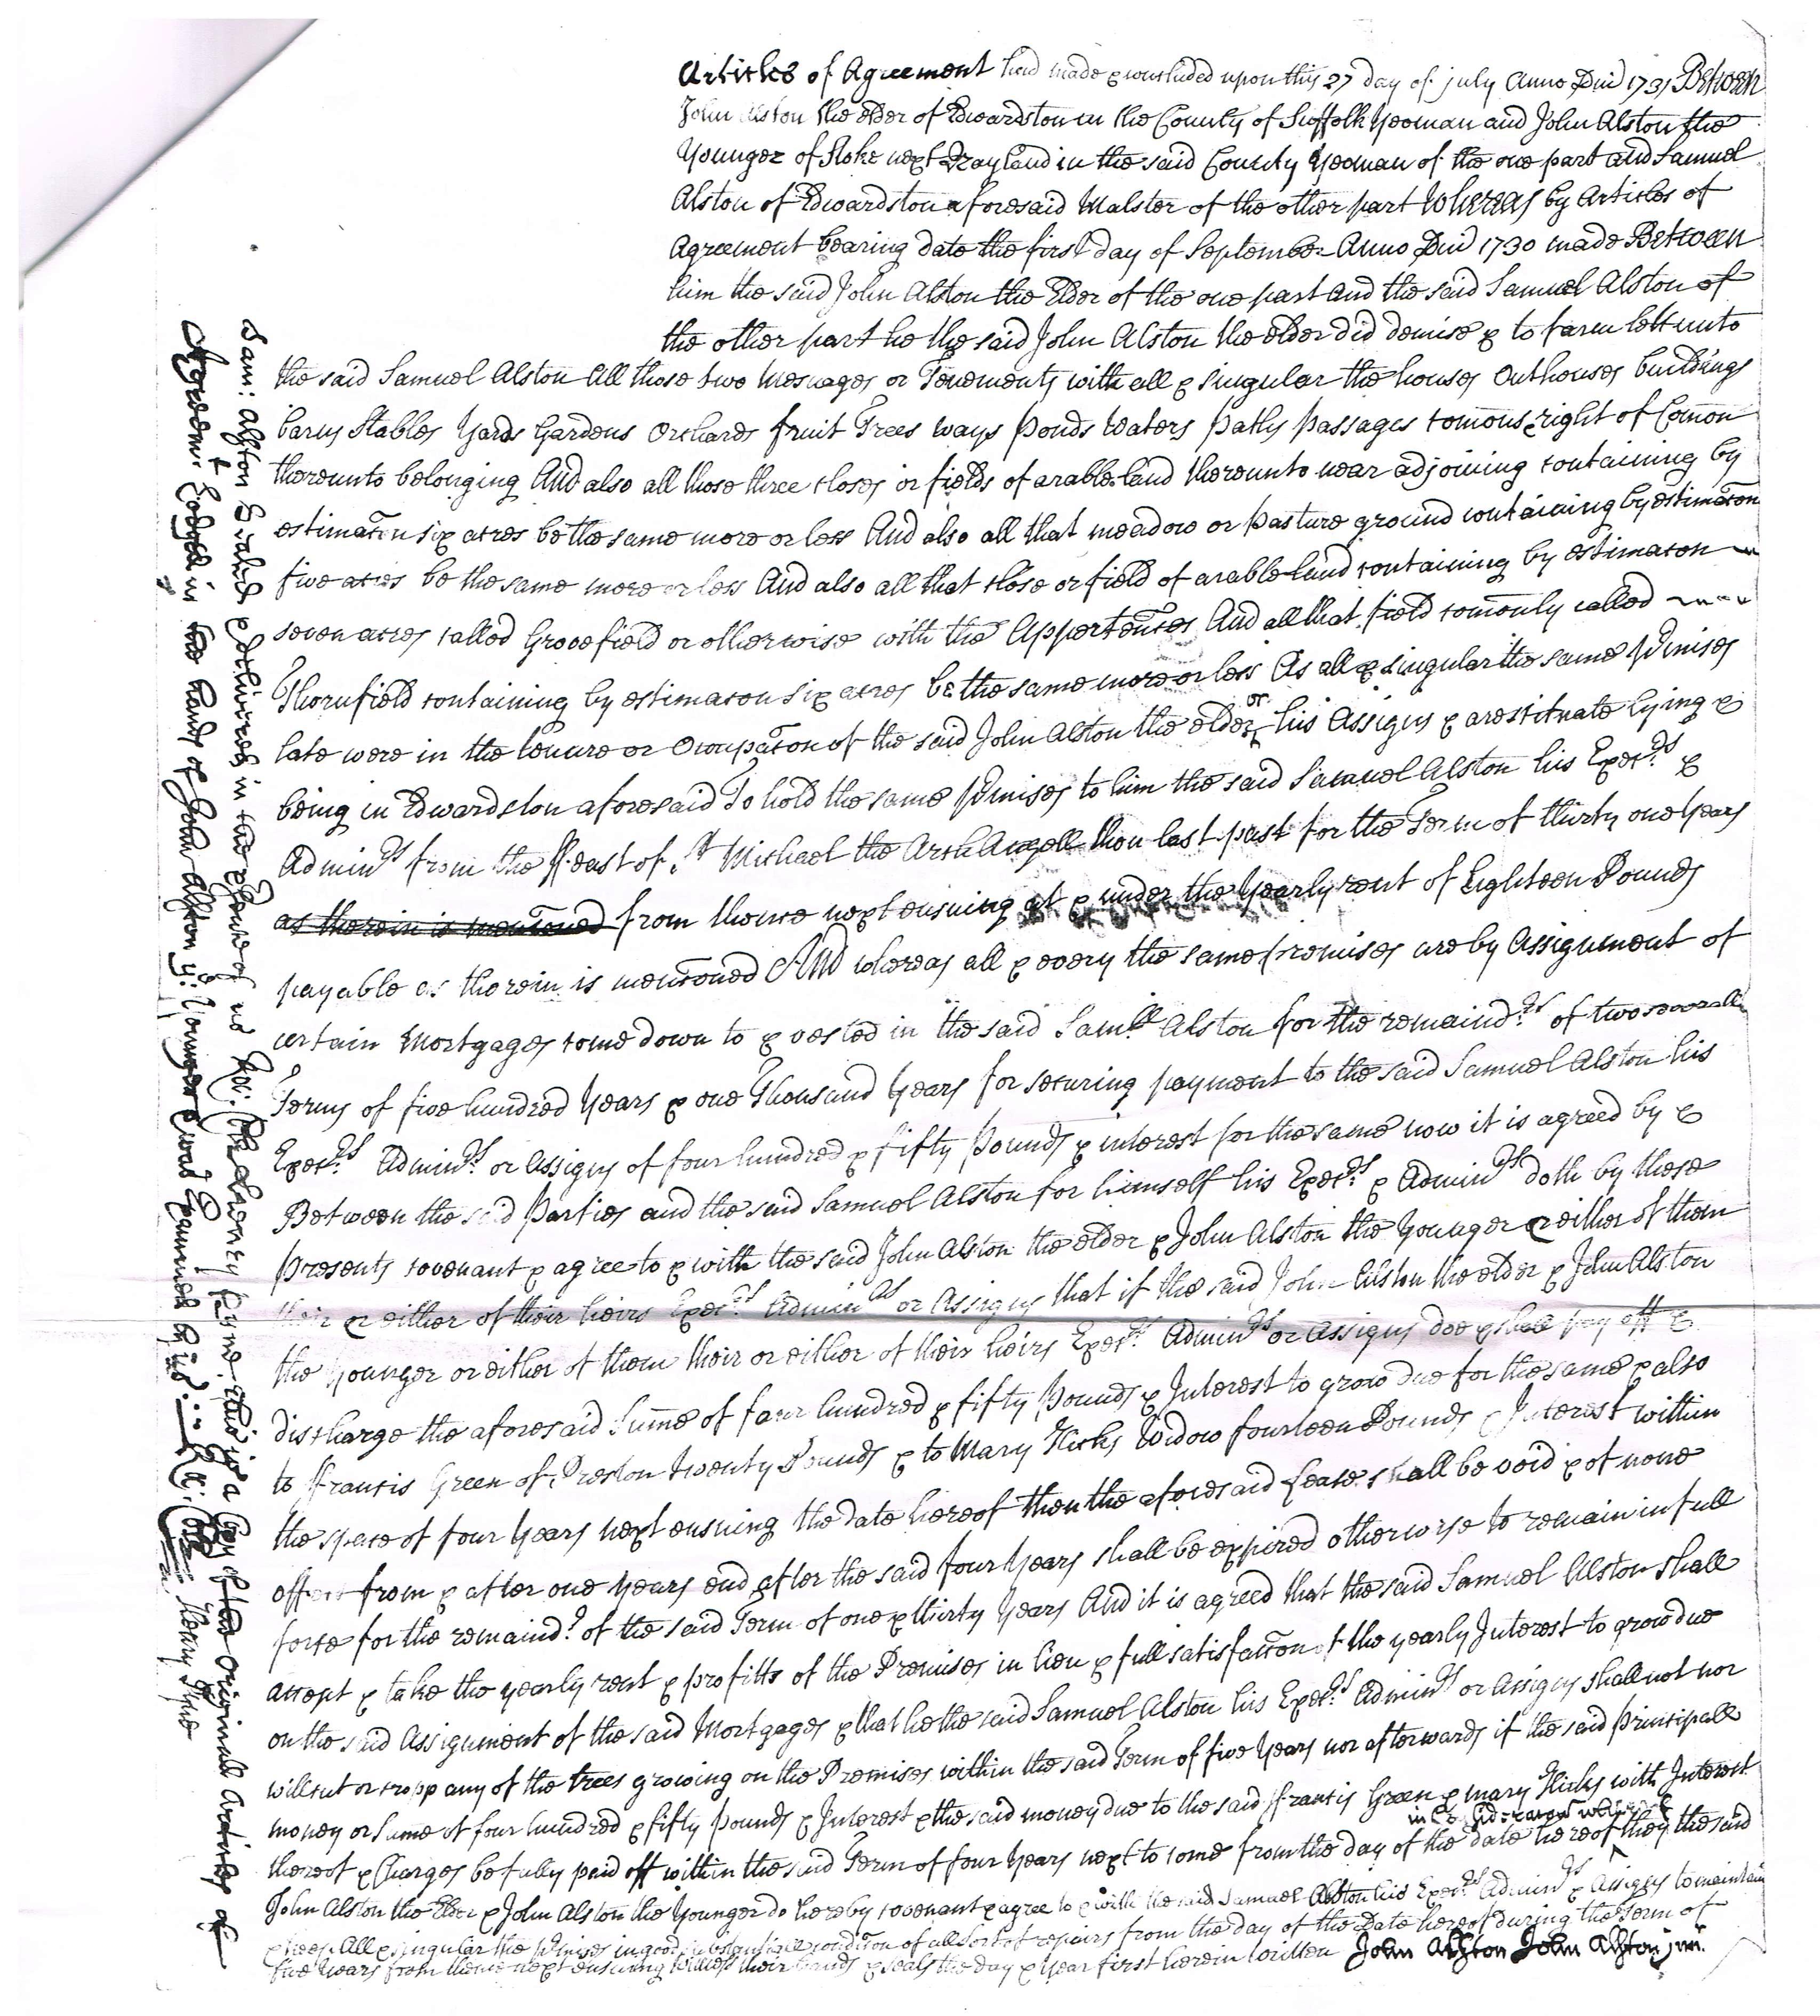 Articles of Agreement had made & concluded upon this 27 day of july Anno Dni 1731 Between
John Alston the elder of Edwardston in the County of Suffolk Yeoman and John Alston the
Younger of Stoke next Nayland in the said County Yeoman of the one part and Samuel
Alston of Edwardston aforesaid Malster of the other part Whereas by Articles of
Agreement bearing date the first day of September Anno Dni 1730 made Between
him the said John Alston the Elder of the one part and the said Samuel Alston of
the other part he the said John Alston the elder did demise & to farm lett unto
the said Samuel Alston All those two Messuages or Tenements with all & singular the houses Outhouses buildings
barns Stables Yards Gardens Orchards fruit Trees ways Ponds Waters Paths Passages comons right of Comon
thereunto belonging And also all those three closes or fields of arable land thereunto near adjoining containing by
estimacon six acres be the same more or less And also all that meadow or Pasture ground containing by estimacon
five acres be the same more or less And also all that close or field of arable land containing by estimacon
seven acres called Grovefield or otherwise with the Appertences And all that field comonly called
Thornfield containing by estimacon six acres be the same more or less As all & singular the same Pmises
late were in the tenure or Occupacon of the said John Alston the elder or his Assigns & are situate lying &
being in Edwardston aforesaid To hold the same Pmises to him the said Samuel Alston his Execrs &
Adminrs from the ffeast of St Michael the ArchAngell then last past for the Term of thirty one Years
as therein is mencioned from thence next ensuing at & under the Yearly rent of Eighteen Pounds
payable as therein is mencioned And whereas all & every the same premises are by Assignment of
certain Mortgages come down to & vested in the said Samll Alston for the remaindr of two severall
Terms of five hundred Years & one Thousand Years for securing payment to the said Samuel Alston his
Execrs Adminrs or Assigns of four hundred & fifty Pounds & interest for the same now it is agreed by &
Between the said Parties and the said Samuel Alston for himself his Execrs & Adminrs doth by these
Presents covenant & agree to & with the said John Alston the elder & John Alston the Younger or either of them
their or either of their heirs Execrs Adminrs or Assigns that if the said John Alston the elder & John Alston
the Younger or either of them their or either of their heirs Execrs Adminrs or Assigns doe & shall pay off &
discharge the aforesaid Sume of four hundred & fifty Pounds & Interest to grow due for the same & also
to ffrancis Green of Preston twenty Pounds & to Mary Hicks Widow fourteen Pounds & Interest within
the space of four Years next ensuing the date hereof then the aforesaid Lease shall be void & of none
effect from & after one Years end after the said four Years shall be expired otherwise to remain in full
force for the remaindr of the said Term of one & thirty Years And it is agreed that the said Samuel Alston shall
accept & take the yearly rent & profitts of the Premises in lieu & full satisfaccon of the yearly Interest to grow due
on the said Assignment of the said Mortgages & that he the said Samuel Alston his Execrs Adminrs or Assigns shall not nor
will cut or cropp any of the trees growing on the Premises within the said Term of five Years nor afterwards if the said Principall
money or Sume of four hundred & fifty pounds & Interest & the said money due to the said ffrancis Green & Mary Hicks with Interest
thereof & Charges be fully paid off within the said Term of four Years next to come from the day of the date hereof in Consideracon whereof they the said
John Alston the Elder & John Alston the Younger do hereby covenant & agree to & with the said Samuel Alston his Execrs Adminrs & Assigns to maintain
& keep All & singular the Pmises in good substantiall condicon of all sort of repairs from the day of the Date hereof during the Term of
five Years from thence next ensuing Witness their hands & seals the day & Year first herein written John Alston John Alston junr.
Sam: Alston Sealed & delivered in the Psence of us This is a Copy of the Originall Articles of
Agreemt Lodged in the hands of John Alston ye Younger & was Examined by